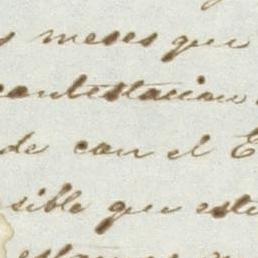 s meses que
contestacion
de con el E
sible que este